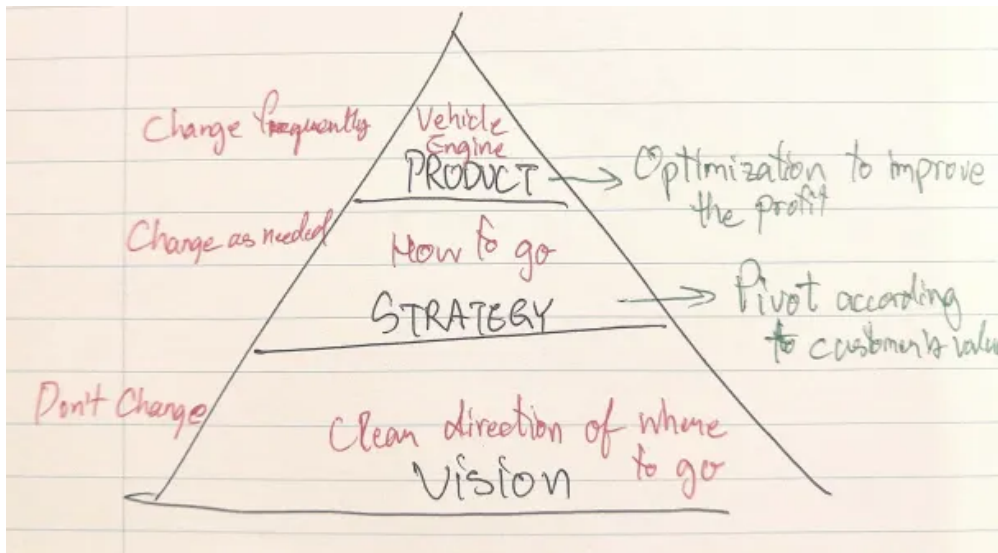 Change frequently
Vehicle
Engine
PRODUCT
Optimization to improve
the profit
Change as needed
How to go
STRATEGY
Pivot according
to customer's value
Don't Change
Clean direction of where
to go
Vision